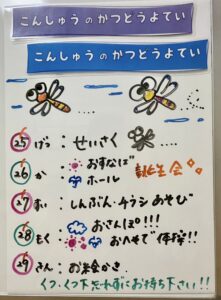 こんしゅうのかつどうよてい
こんしゅうのかつどうよてい
25 げつ：せいさく
26 か：おすなば 誕生会
ホール
27 すい：しんぶん・チラシあそび
28 もく：おさんぽ!!!
おへやで"体操"!!
29 きん：お絵かき
くつ・くつ下忘れずにお持ち下さい!!